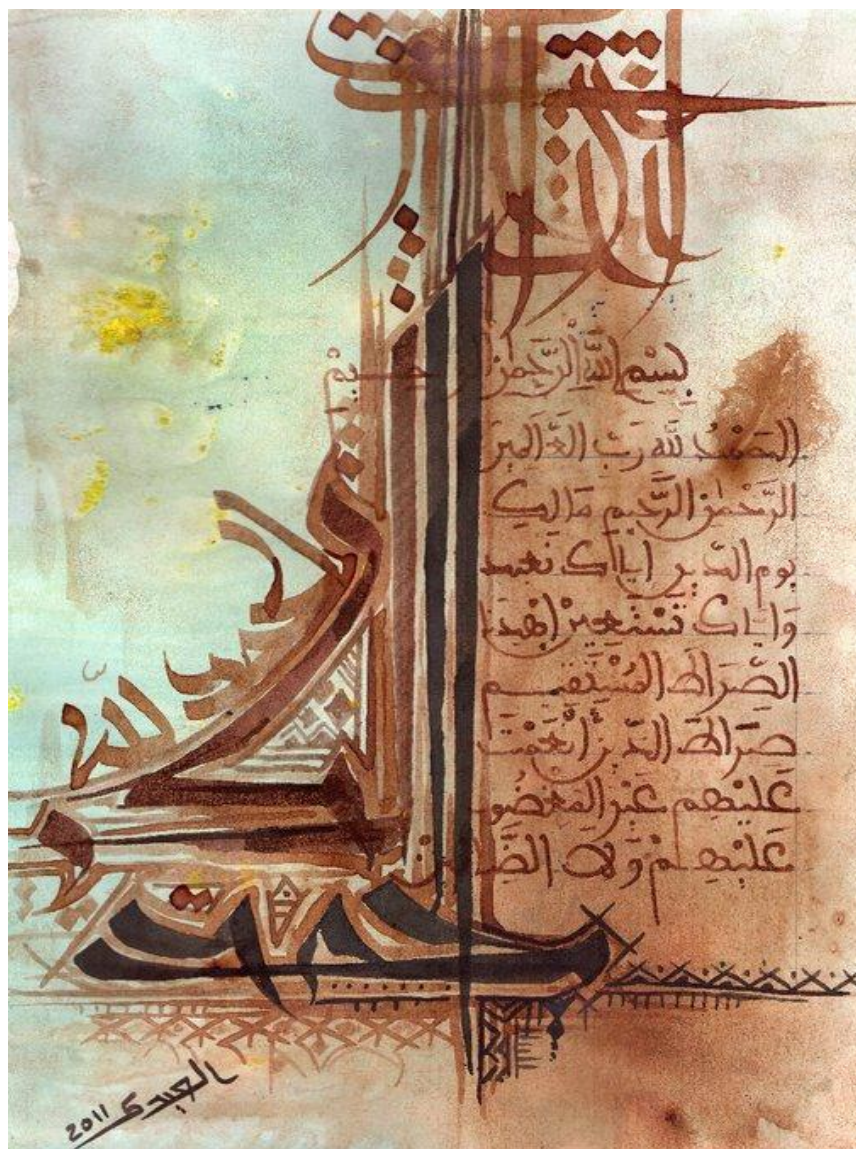 بِسْمِ اللَّهِ الرَّحْمٰنِ الرحيم
الحَمْدُ للَّهِ رَبِّ العَالَمِينَ
الرَّحْمٰنِ الرَّحِيمِ مَالِكِ
يوم الدّين اياك نعبد
وَاياك نَسْتَعِينْ اِهْدِنَا
الصِّرَاطَ المُسْتَقِيم
صِرَاطَ الذِينَ أَنْعَمْتَ
عَلَيْهِم غَيْرِ المَغْضُوب
عَلَيْهِمْ وَلاَ الضَّالين
العبدي 2011